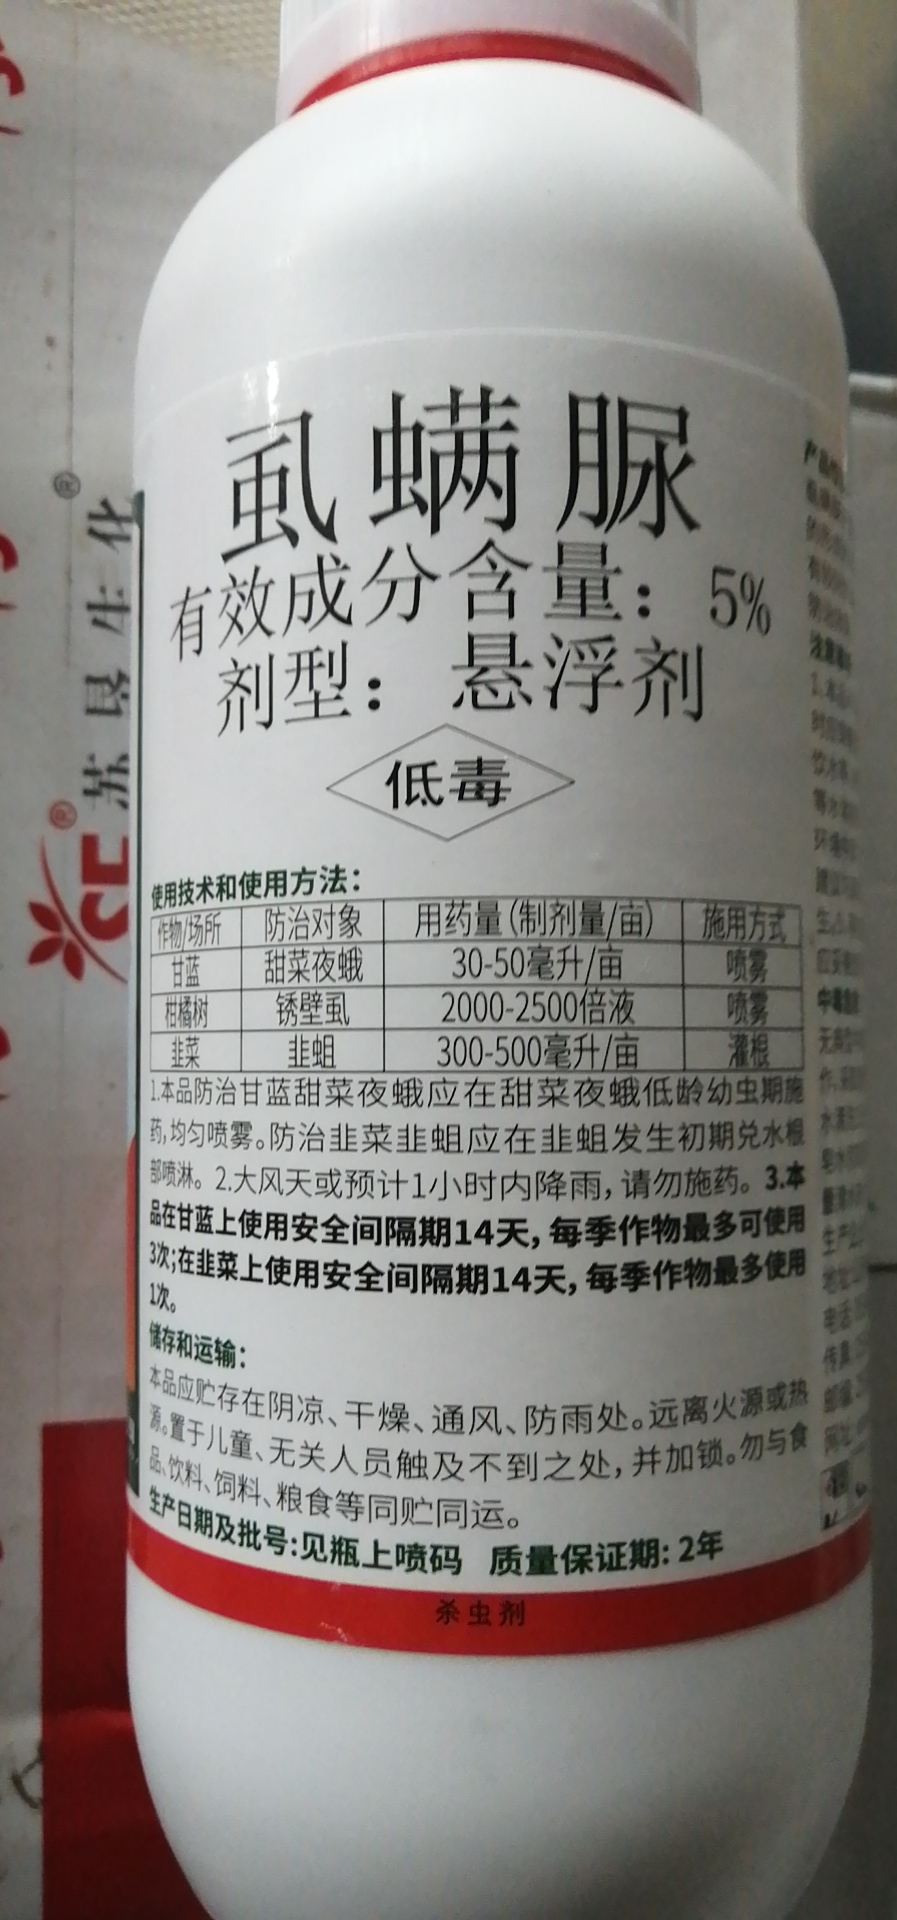 虱螨脲
有效成分含量：5%
剂型：悬浮剂
低毒
使用技术和使用方法：
作物/场所 防治对象 用药量(制剂量/亩) 施用方式
甘蓝 甜菜夜蛾 30-50毫升/亩 喷雾
柑橘树 锈壁虱 2000-2500倍液 喷雾
韭菜 韭蛆 300-500毫升/亩 灌根
1.本品防治甘蓝甜菜夜蛾应在甜菜夜蛾低龄幼虫期施
药，均匀喷雾。防治韭菜韭蛆应在韭蛆发生初期兑水根
部喷淋。2.大风天或预计1小时内降雨，请勿施药。3.本
品在甘蓝上使用安全间隔期14天，每季作物最多可使用
3次；在韭菜上使用安全间隔期14天，每季作物最多使用
1次。
储存和运输：
本品应贮存在阴凉、干燥、通风、防雨处。远离火源或热
源。置于儿童、无关人员触及不到之处，并加锁。勿与食
品、饮料、饲料、粮食等同贮同运。
生产日期及批号：见瓶上喷码 质量保证期：2年
杀虫剂
苏垦生化